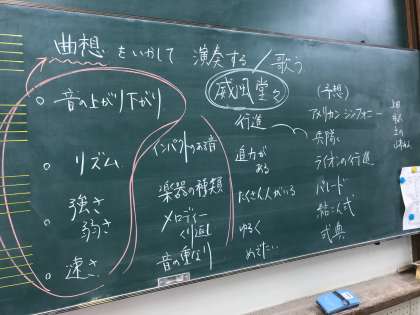 曲想をいかして 演奏する／歌う
威風堂々
○ 音の上がり下がり
○ リズム
○ 強さ
弱さ
○ 速さ
インパクトのある音
楽器の種類
メロディー
くり返し
音の重なり
行進
迫力が
ある
たくさん人がいる
ゆるく
めでたい
(予想)
アメリカン・シンフォニー
兵隊
ライオンの行進
パレード
結こん式
式典